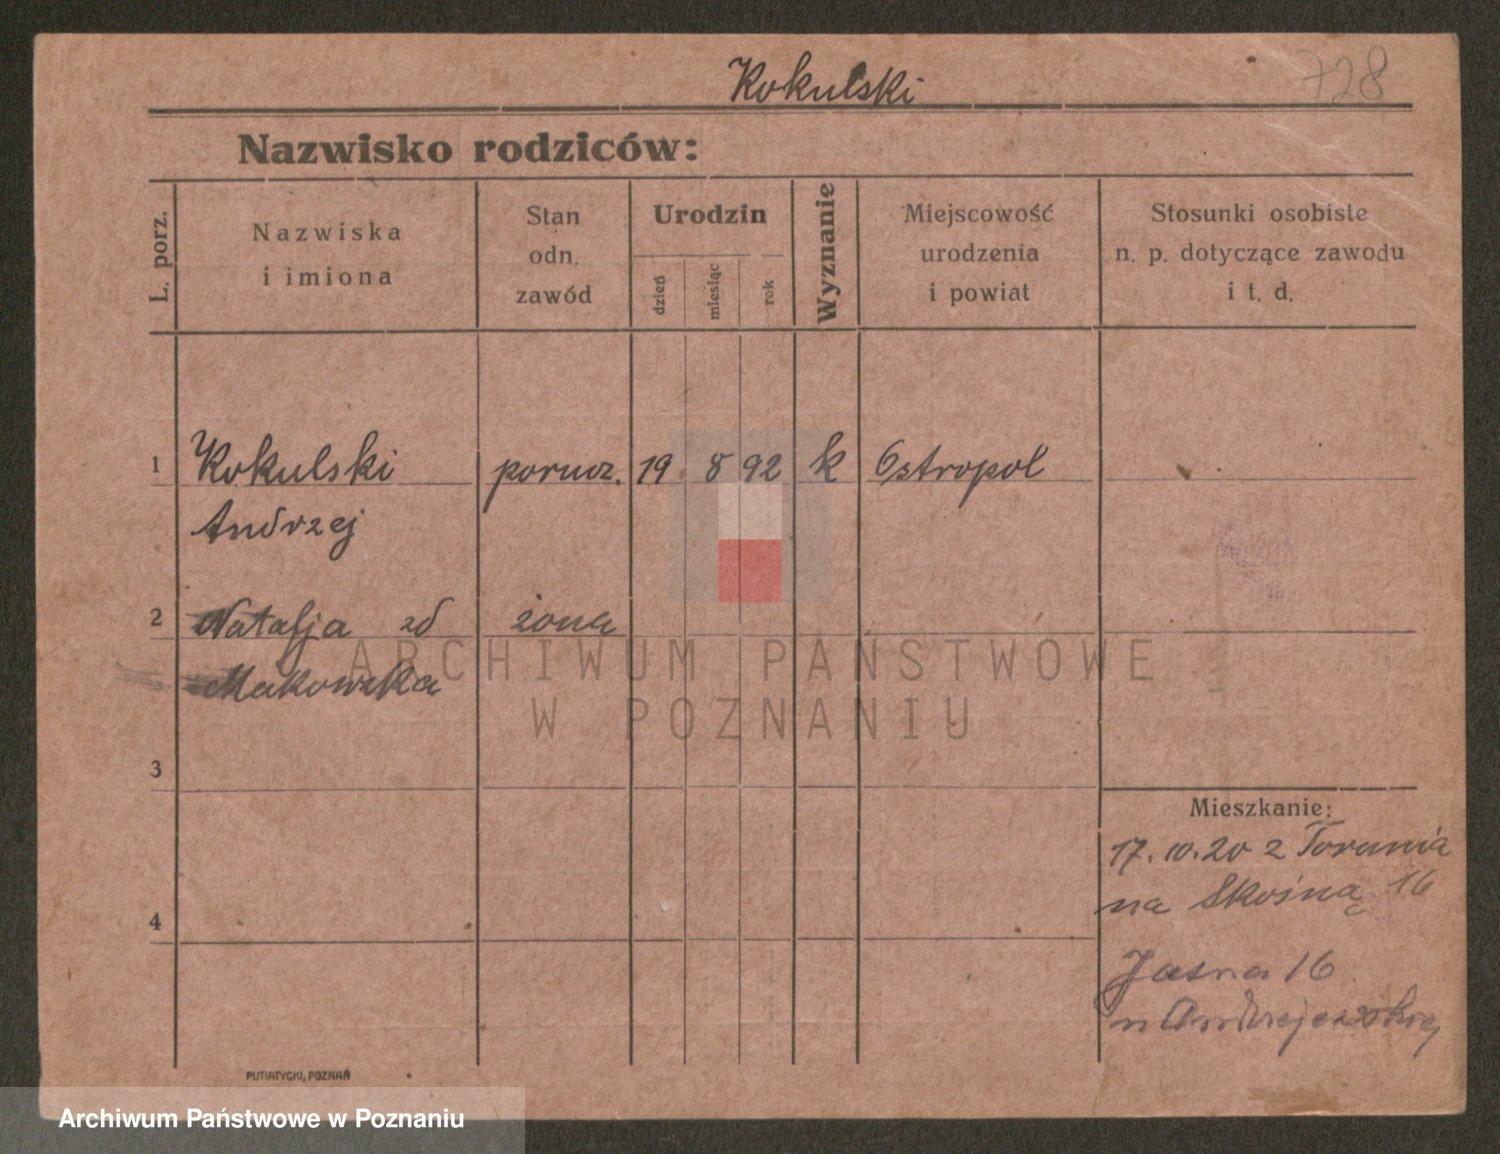 Kokulski 728
Nazwisko rodziców:
L. porz.
Nazwiska
i imiona
Stan
odn.
zawód
Urodzin
dzień
miesiąc
rok
Wyznanie
Miejscowość
urodzenia
i powiat
Stosunki osobiste
n. p. dotyczące zawodu
i t. d.
1 Kokulski porucz. 19 8 92 k Ostropol
Andrzej
2 Natalja zd żona
Makowska
ARCHIWUM PAŃSTWOWE
W POZNANIU
3
Mieszkanie:
17. 10. 20 z Torunia
na Skośną 16
4
Jasna 16
u Andrzejewskiej
PUTIATYCKI, POZNAŃ
Archiwum Państwowe w Poznaniu